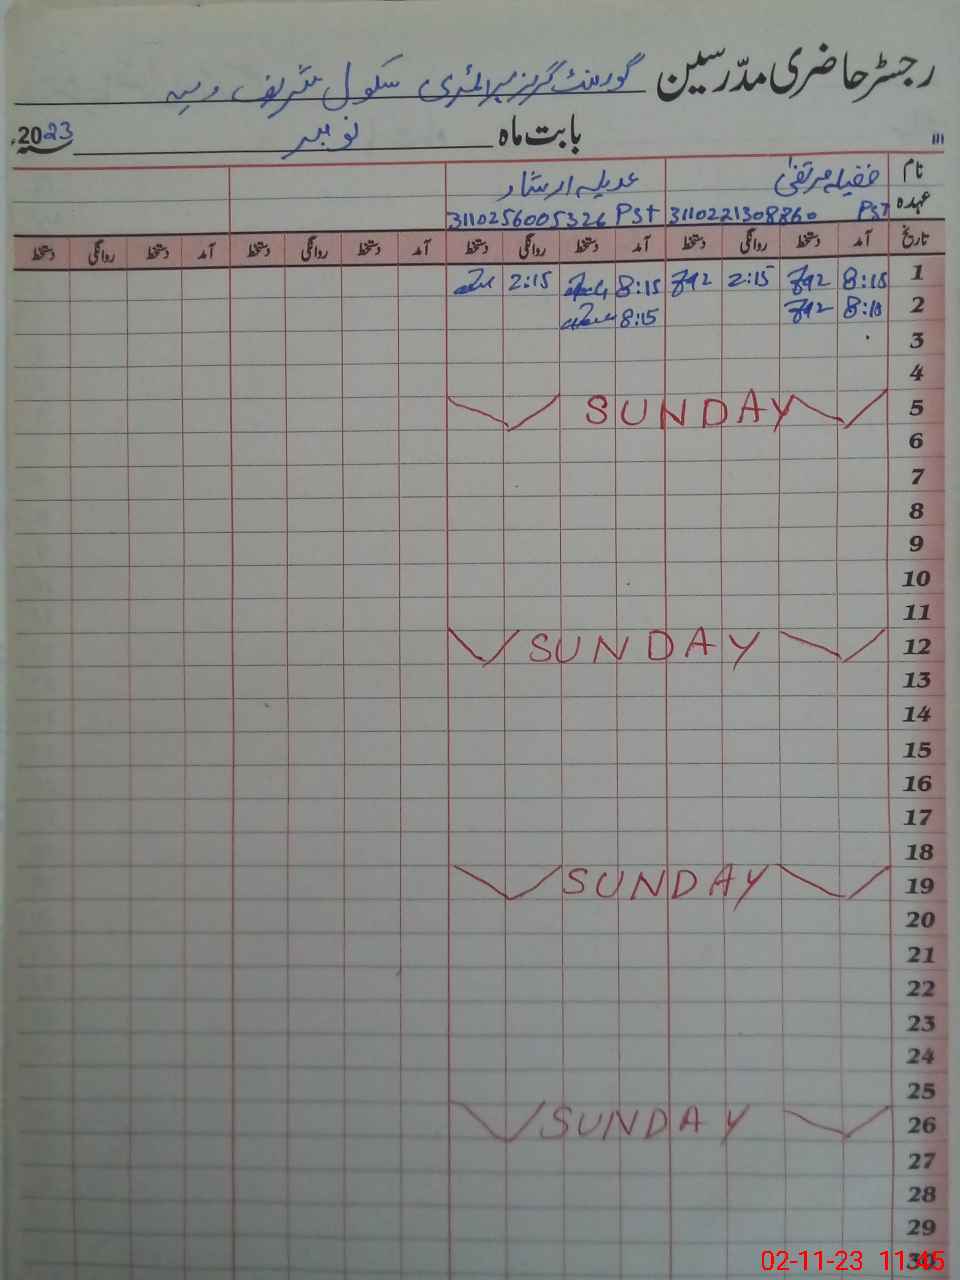 رجسٹر حاضری مدّرسین گورنمنٹ گرلز پرائمری سکول شریف
بابت ماہ نومبر 2023ء
نام مرتضیٰ عدیلہ ارشاد
عہدہ PST 3110221308860 PST 3110256005326
تاریخ آمد دستخط روانگی دستخط آمد دستخط روانگی دستخط آمد دستخط روانگی دستخط آمد دستخط روانگی دستخط
1 8:15 2:15 8:15 2:15
2 8:15 8:15
3
4
5 SUNDAY
6
7
8
9
10
11
12 SUNDAY
13
14
15
16
17
18
19 SUNDAY
20
21
22
23
24
25
26 SUNDAY
27
28
29
30
02-11-23 11:45